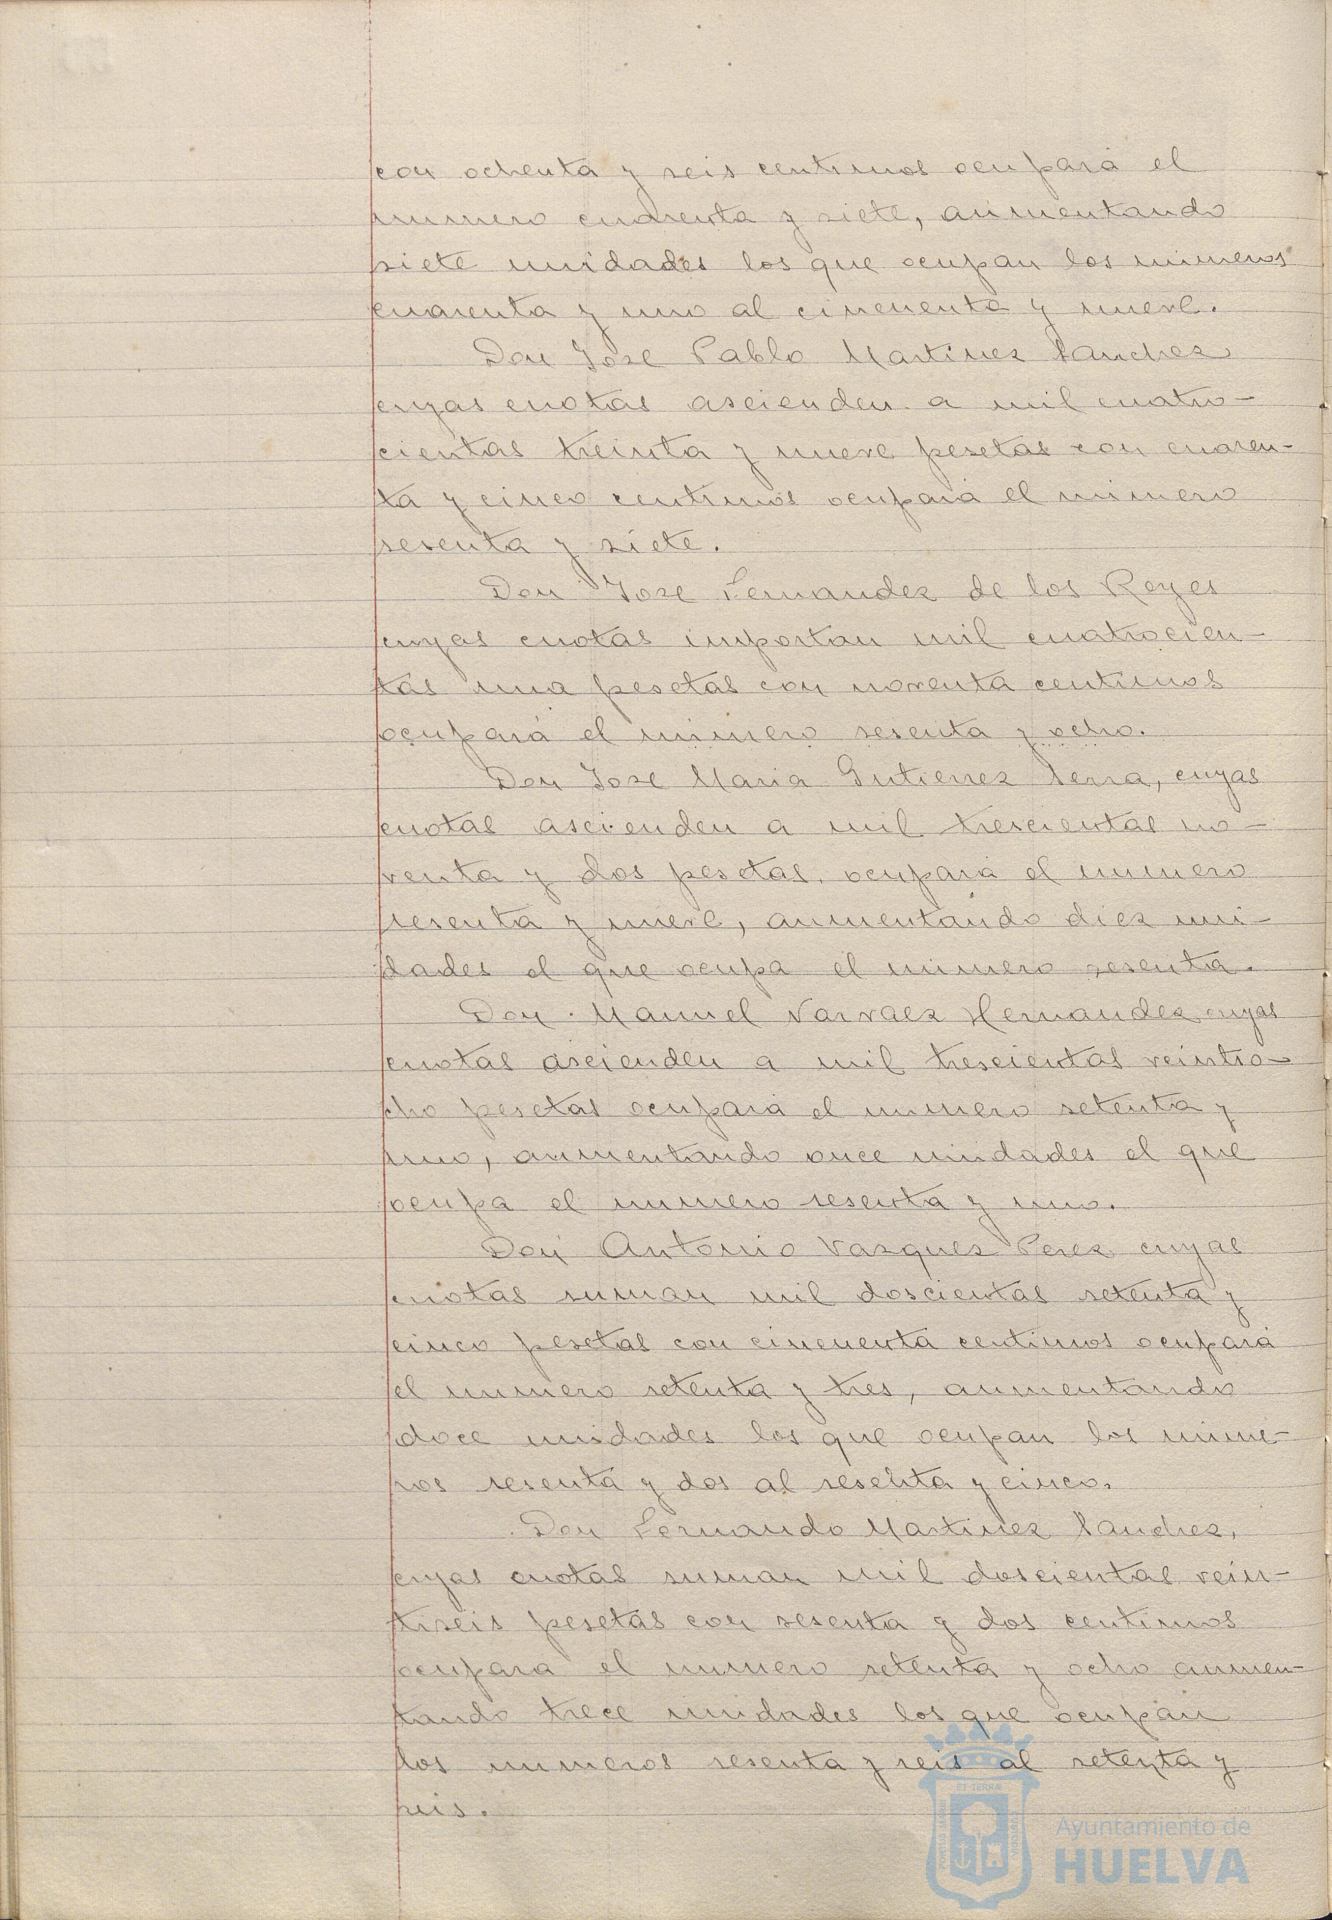 con ochenta y seis centimos ocupará el
numero cuarenta y siete, aumentando
siete unidades los que ocupan los numeros
cuarenta y uno al cincuenta y nueve.
Don Jose Pablo Martinez Sanchez
cuyas cuotas ascienden a mil cuatro-
cientas treinta y nueve pesetas con cuaren-
ta y cinco centimos ocupará el numero
sesenta y siete.
Don Jose Fernandez de los Reyes
cuyas cuotas importan mil cuatrocien-
tas una pesetas con noventa centimos
ocupará el numero sesenta y ocho.
Don Jose Maria Gutierrez Serra, cuyas
cuotas ascienden a mil trescientas no-
venta y dos pesetas, ocupará el numero
sesenta y nueve, aumentando diez uni-
dades el que ocupa el numero sesenta.
Don Manuel Narvaez Hernandez cuyas
cuotas ascienden a mil trescientas veintio-
cho pesetas ocupará el numero setenta y
uno, aumentando once unidades el que
ocupa el numero sesenta y uno.
Don Antonio Vazquez Perez cuyas
cuotas suman mil doscientas setenta y
cinco pesetas con cincuenta centimos ocupará
el numero setenta y tres, aumentando
doce unidades los que ocupan los nume-
ros sesenta y dos al sesenta y cinco.
Don Fernando Martinez Sanchez,
cuyas cuotas suman mil doscientas vein-
tiseis pesetas con sesenta y dos centimos
ocupara el numero setenta y ocho aumen-
tando trece unidades los que ocupan
los numeros sesenta y seis al setenta y
seis.
Ayuntamiento de
HUELVA